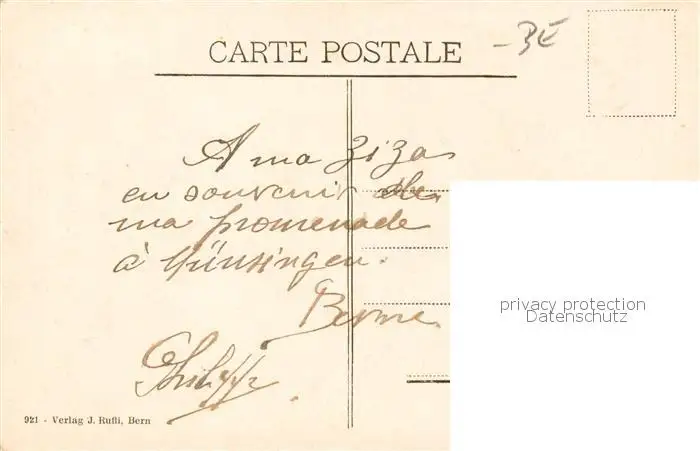 CARTE POSTALE
- BE
A ma Zizas
en souvenir de
ma promenade
à Münsingen.
Berne.
Philipp
921 - Verlag J. Rufli, Bern
privacy protection
Datenschutz